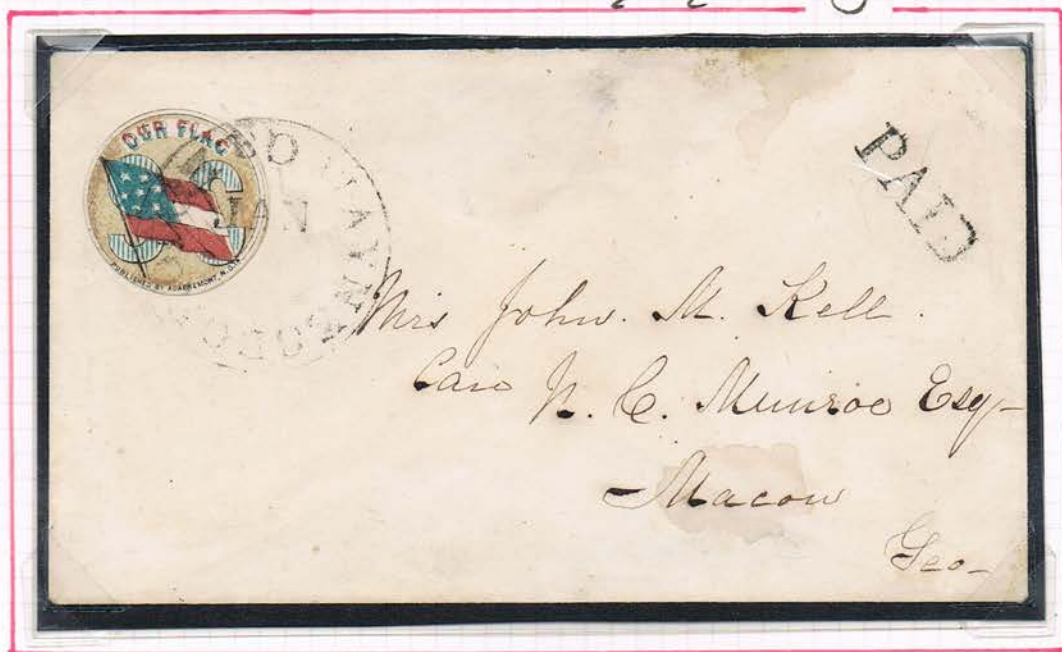 OUR FLAG
C S
JAN
PAID
Mrs John. M. Kell.
Care N. C. Munroe Esq-
Macon
Geo-